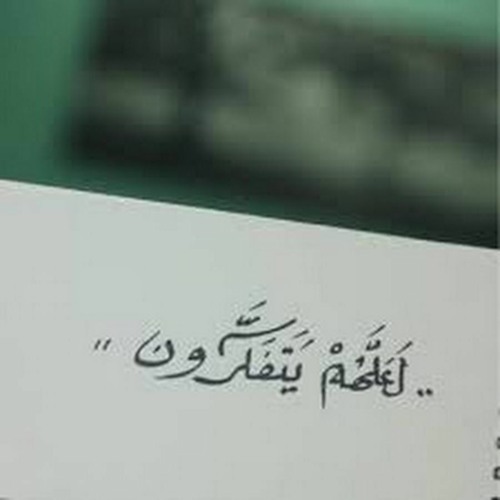 .. لَعَلَّهُمْ يَتَفَكَّرُون "